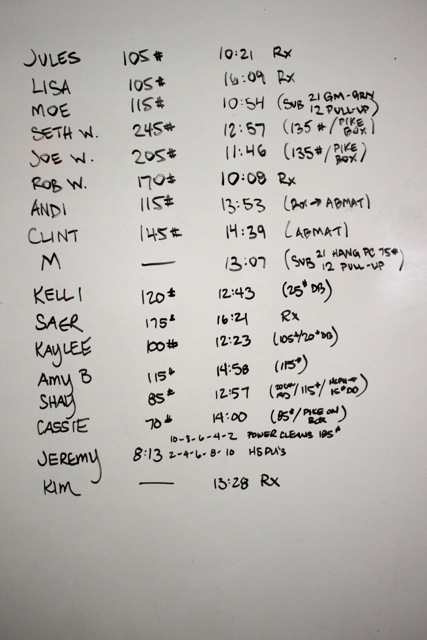 JULES 105# 10:21 Rx
LISA 105# 16:09 Rx
MOE 115# 10:54 (SUB 21 GM-GRN
12 PULL-UP)
SETH W. 245# 12:57 (135#/PIKE
BOX)
JOE W. 205# 11:46 (135#/PIKE
BOX)
ROB W. 170# 10:08 Rx
ANDI 115# 13:53 (Rx→ABMAT)
CLINT 145# 14:39 (ABMAT)
M — 13:07 (SUB 21 HANG PC 75#
12 PULL-UP)
KELLI 120# 12:43 (25# DB)
SAER 175# 16:21 Rx
KAYLEE 100# 12:23 (105#/20# DB)
AMY B 115# 14:58 (115#)
SHAY 85# 12:57 /115#/
CASSIE 70# 14:00 (85#/PIKE ON
BOX)
10-8-6-4-2 POWER CLEANS 185#
JEREMY 8:13 2-4-6-8-10 HSPU'S
KIM — 13:28 Rx